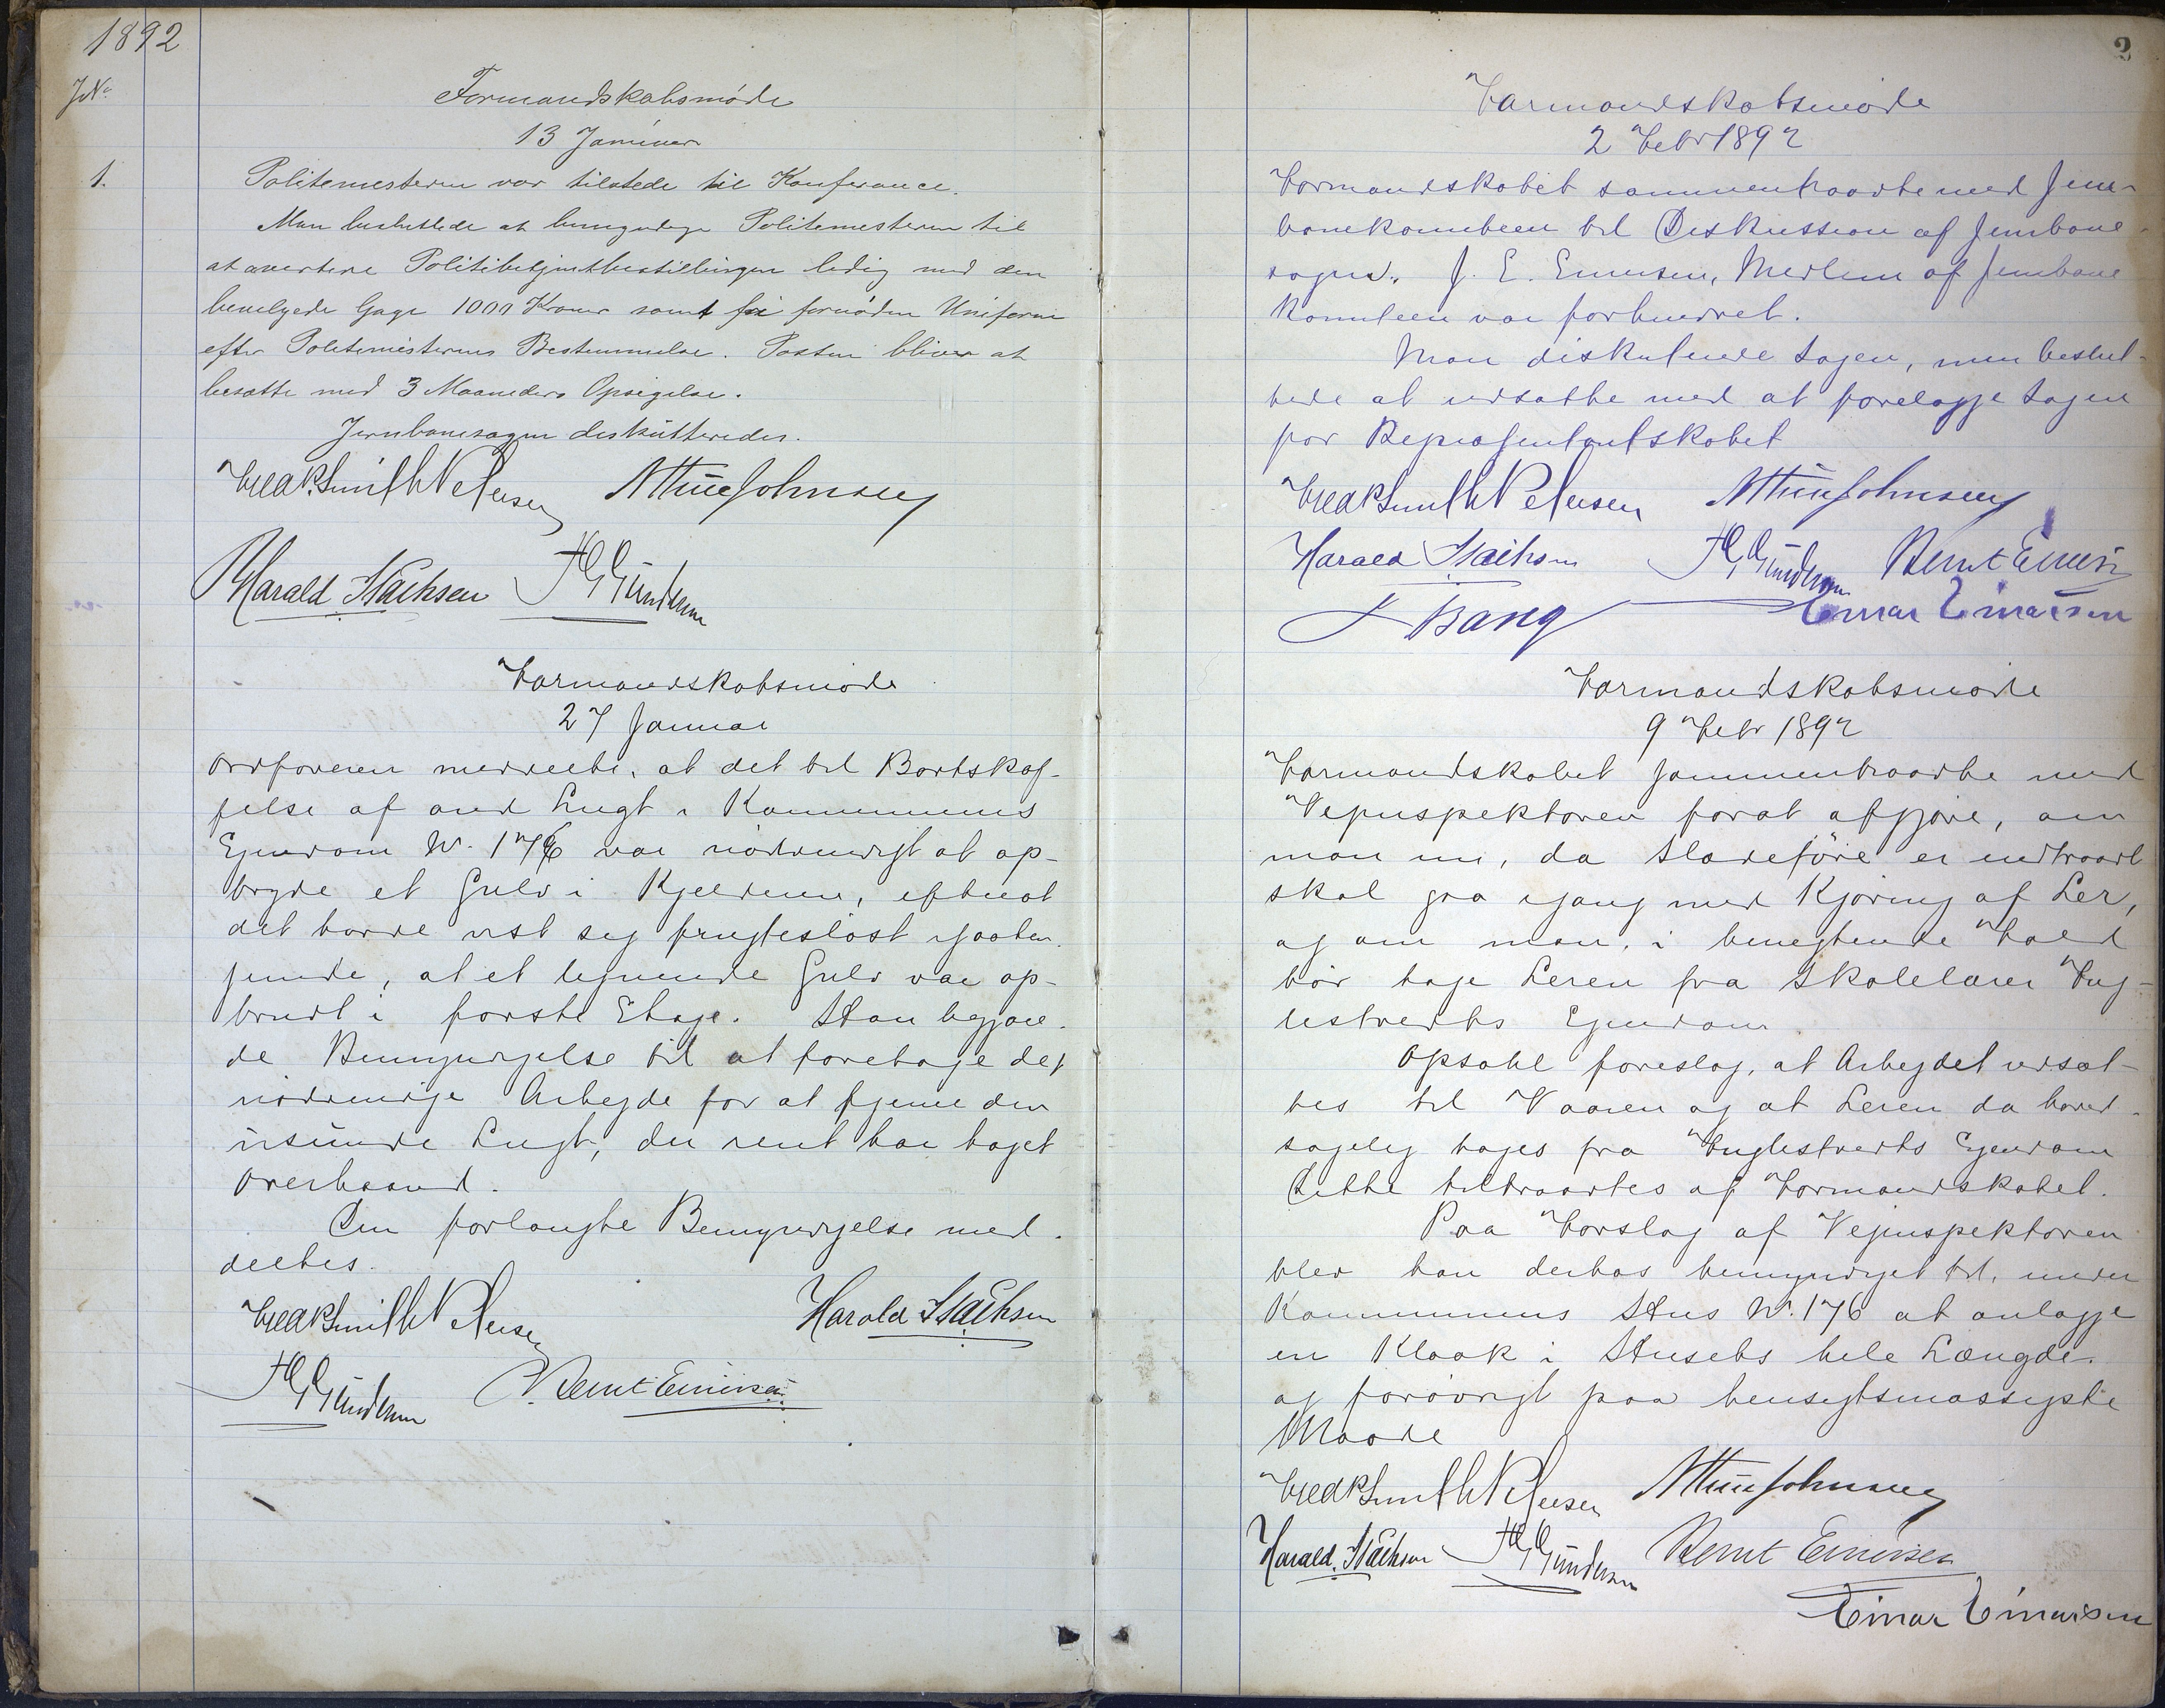 1892
J.N.
Formandskabsmöde
13 Januar
1.
Politimesteren var tilstede til Konferance.
Man besluttede at bemyndige Politimesteren til
at avertere Politibetjentbestillingen ledig med den
bevilgede Gage 1000 Kroner samt fri fornöden Uniform
efter Politimesterens Bestemmelse. Posten bliver at
besætte med 3 Maaneders Opsigelse.
Jernbanesagen diskutteredes.
Fredk Smith Petersen
Harald Isachsen
Formandskabsmöde
27 Januar
Ordföreren meddelte, at det til Bortskaf-
felse af ond Lugt i Kommunens
Ejendom No. 176 var nödvendigt at op-
bryde et Gulv i Kjelderen, efterat
det havde vist sig frugteslöst
, at et lignende Gulv var op-
brudt i förste Etage. Han begjær-
de Bemyndigelse til at foretage det
nödvendige Arbejde for at fjerne den
usunde Lugt, der rent har taget
Overhaand.
Den forlangte Bemyndigelse med-
deltes.
Fredk Smith Petersen Harald Isachsen
Bernt Evensen
2
Formandskabsmöde
2 Febr 1892
Formandskabet sammentraadte med Jern-
banekomiteen til Diskussion af Jernbane-
sagen. J. E. Evensen, Medlem af Jernbane
Komiteen var forhindret.
Man diskuterede Sagen, men beslut-
tede at udsætte med at forelægge Sagen
for Repræsentantskabet
Fredk Smith Petersen
Harald Isachsen
Bang Einar Einarsen
Formandskabsmöde
9 Febr 1892
Formandskabet sammentraadte med
Vejinspektören forat afgjöre, om
man nu, da Slædeföre er indtraadt
skal gaa igang med Kjöring af Ler,
og om man, i benegtende Fald
bör tage Leren fra Skolelærer Fug-
lestvedts Ejendom
Opsahl foreslog, at Arbejdet udsæt-
tes til Vaaren og at Leren da hoved-
sagelig tages fra Fuglestvedts Ejendom
Dette tiltraadtes af Formandskabet.
Paa Forslag af Vejinspektören
blev han derhos bemyndiget til, under
Kommunens Hus No. 176 at anlægge
en Kloak i Husets hele Længde.
og forövrigt paa hensigtsmæssigste
Maade
Fredk Smith Petersen
Harald Isachsen Bernt Evensen
Einar Einarsen